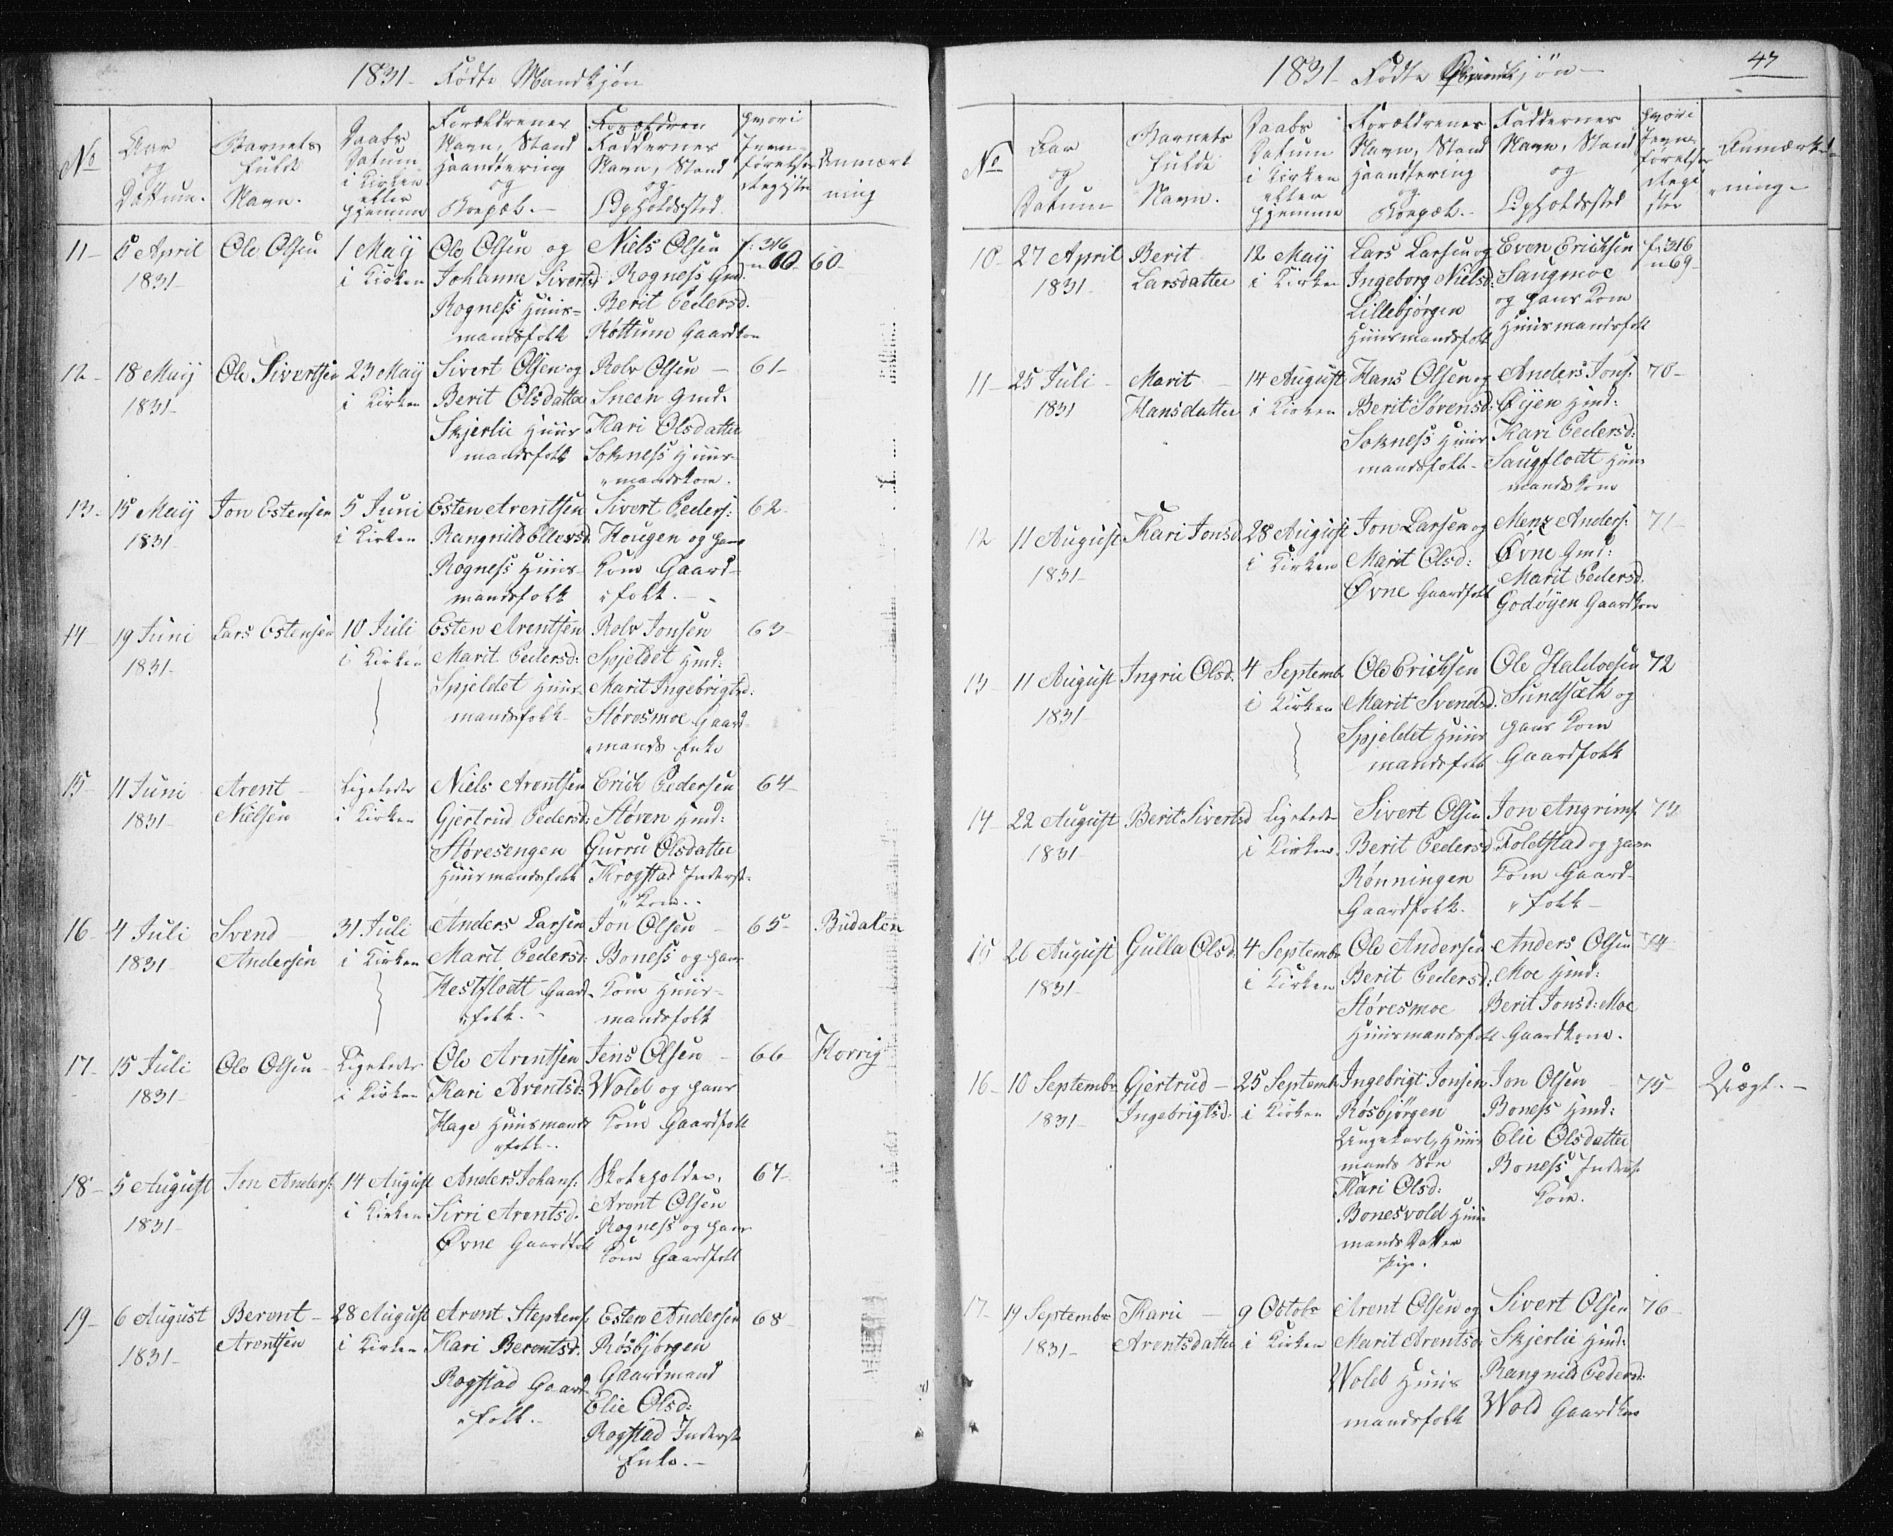 1831. Fødte Mandkjøn
No
Aar
og
Dattum.
Barnets
fulde
Navn.
Daabs
Datum
i Kirken
eller
hjemme
Forældrenes
Navn, Stand
Haandtering
og
Boepæl.
Faddernes
Navn, Stand
og
Opholdssted.
hvori
Jevn-
førelses
Registr
Anmærk
ning
11-
6 April
1831-
Ole Olsen
1 Maij
i Kirken
Ole Olsen og
Johanne Sivertsd:
Rogness Huus-
mandsfolk
Niels Olsen
Rogness Gmd.
Berit Pedersd.
Røttum Gaardkone
f: 316
n 60
60-
12-
18 Maij
1831-
Ole Sivertsen
23 Maij
i Kirken
Sivert Olsen og
Berit Olsdatter
Skjerlie Huus
mandsfolk
Rolv Olsen -
Sneen Gmd:
Kari Olsdatter
Sokness Huus-
mandskone.
61-
13-
15 Maij
1831-
Jon Estensen
5 Juni
i Kirken
Esten Arentsen
Rangnild Ellevsd:
Rogness Huus-
mandsfolk
Sivert Peders:
Hougen og hans
Kone Gaard-
folk.-
62-
14-
19 Juni
1831-
Lars Estensen
10 Juli
i Kirken
Esten Arentsen
Marit Pedersd:
Spjeldet Huus-
mandsfolk-
Rolv Jonsen
Spjeldet Hmd:
Marit Ingebrigtsd:
Støresmoe Gaard-
mands Enke
63-
15-
11 Juni
1831-
Arent
Nielsen
Ligeledes
i Kirken
Niels Arentsen
Gjertrud Pedersd:
Støresengen
Huusmandsfolk
Erich Pedersen
Støren Hmd:
Gurru Olsdatter
Krogstad Inderst-
Kone.-
64-
16-
4 Juli
1831-
Svend
Andersen
31 Juli
i Kirken
Anders Larsen
Marit Pedersd:
Hestflodt Gaard-
folk.-
Jon Olsen -
Boness og hans
Kone Huus-
mandsfolk
65-
Budalen
17-
15 Juli
1831-
Ole Olsen-
Ligeledes
i Kirken
Ole Arentsen
Kari Arentsd:
Hage Huusmands
folk.-
Jens Olsen -
Wold og hans
Kone Gaardfolk
66-
Horrig
18-
5 August
1831-
Jon Anders:
14 August
i Kirken
Anders Johans:
Sirri Arentsd.
Øvne Gaardfolk
Skoleholder,
Arent Olsen
Rogness og hans
Kone Gaardfolk
67-
19-
6 August
1831-
Berent-
Arentsen
28 August
i Kirken
Arent Stephens:
Kari Berentsd:
Rogstad Gaard-
folk.-
Esten Andersen
Røsbjørgen
Gaardmand
Elie Olsd:
Rogstad Inderst
Enke.-
68-
47
1831- Fødte Qvindkjøn-
No
Aar
og
Datum
Barnets
fulde
Navn.
Daabs
Datum
i Kirken
eller
hjemme
Forældrenes
Navn, Stand
Haandtering
og
Boepæl.-
Faddernes
Navn, Stand
og
Opholdssted
hvori
Jevn-
førelses
Regi
ster
Anmærk-
ning-
10-
27 April
1831-
Berit
Larsdatter
12 Maij
i Kirken
Lars Larsen og
Ingeborg Nielsd:
Lillebjørgen
Huusmandsfolk
Even Erichsen
Saugmoe
og hans Kone
Huusmandsfolk
f: 316
n 69-
11-
25 Juli -
1831
Marit -
Hansdatter
14 August
i Kirken
Hans Olsen og
Berit Sørensd:
Sokness Huus
mandsfolk-
Anders Jons:
Øijen Hmd:
Kari Pedersd:
Saugflodt Huus
mands Kone
70-
12
11 August
1831-
Kari Jonsd.
28 August
i Kirken
Jon Larsen og
Marit Olsd:
Øvne Gaardfolk
Menz Anders:
Øvne Gmd:
Marit Pedersd:
Godøyen Gaardkone
71-
13-
11 August
1831-
Ingrie Olsd.
4 Septembr
i Kirken
Ole Erichsen
Marit Svendsd:
Spjeldet Huus
mandsfolk
Ole Haldosen
Sundsæth og
hans Kone
Gaardfolk
72
14-
22 August
1831-
Berit Sivertsd
Ligeledes
i Kirken.
Sivert Olsen
Berit Pedersd.
Rønningen
Gaardfolk.
Jon Angrims:
Folstad og hans
Kone Gaard-
folk-
73-
15
26 August
1831-
Gulla Olsd:
4 Septembr
i Kirken
Ole Andersen
Berit Pedersd:
Støresmoe
Huusmandsfolk
Anders Olsen
Moe Hmd:
Berit Jonsd: Moe
Gaardkone.
74-
16-
10 Septembr
1831-
Gjertrud-
Ingebrigtsd.
25 Septembr
i Kirken
Ingebrigt Jonsen
Røsbjørgen
Ungekarl, Huus
mands Søn
Kari Olsd:
Bonesvold Huus
mands Datter
Pige.
Jon Olsen -
Boness Hmd:
Elie Olsdatter
Boness Inderst
Kone.
75-
Uægt.-
17-
19 Septembr
1831-
Karie -
Arentsdatter
9 Octobr
i Kirken
Arent Olsen og
Marit Arentsd:
Wold Huus
mandsfolk
Sivert Olsen
Skjerlie Hmd:
Rangnild Pedersd:
Wold Gaardkone
76-